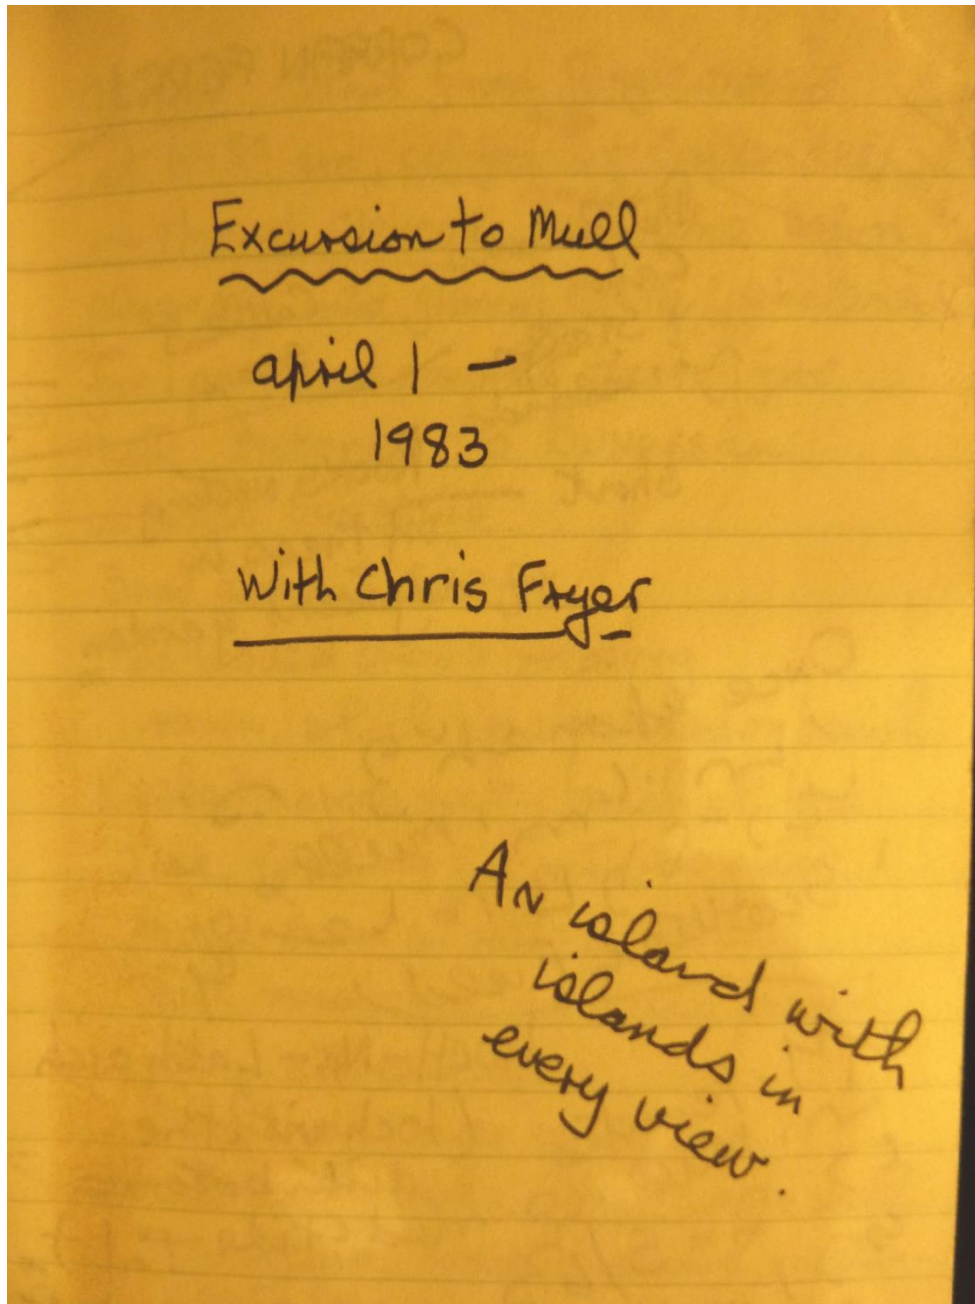 Excursion to Mull
april 1 -
1983
With Chris Fryer
An island with
islands in
every view.